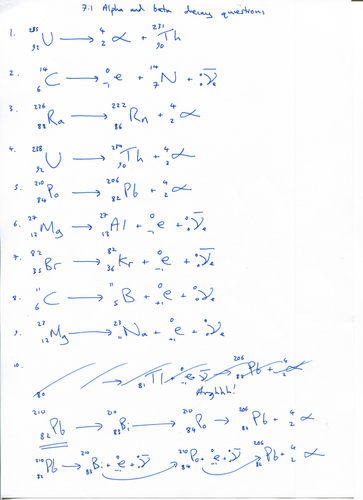 7.1 Alpha and beta decay questions
1. ²³⁵₉₂U ⟶ ⁴₂α + ²³¹₉₀Th
2. ¹⁴₆C ⟶ ⁰₋₁e + ¹⁴₇N + ⁰₀ν̅ₑ
3. ²²⁶₈₈Ra ⟶ ²²²₈₆Rn + ⁴₂α
4. ²³⁸₉₂U ⟶ ²³⁴₉₀Th + ⁴₂α
5. ²¹⁰₈₄Po ⟶ ²⁰⁶₈₂Pb + ⁴₂α
6. ²⁷₁₂Mg ⟶ ²⁷₁₃Al + ⁰₋₁e + ⁰₀ν̅ₑ
7. ⁸²₃₅Br ⟶ ⁸²₃₆Kr + ⁰₋₁e + ⁰₀ν̅ₑ
8. ¹¹₆C ⟶ ¹¹₅B + ⁰₊₁e + ⁰₀νₑ
9. ²³₁₂Mg ⟶ ²³₁₁Na + ⁰₊₁e + ⁰₀νₑ
10. ₈₀ → ₈₁Tl + ⁰₋₁e ν̅ → ²⁰⁶₈₂Pb + ⁴₂α
Arghhh!
²¹⁰₈₂Pb ⟶ ²¹⁰₈₃Bi ⟶ ²¹⁰₈₄Po → ²⁰⁶₈₂Pb + ⁴₂α
²¹⁰₈₂Pb → ²¹⁰₈₃Bi + ⁰₋₁e + ⁰₀ν̅ ²¹⁰₈₄Po + ⁰₋₁e + ⁰₀ν̅ ²⁰⁶₈₂Pb + ⁴₂α